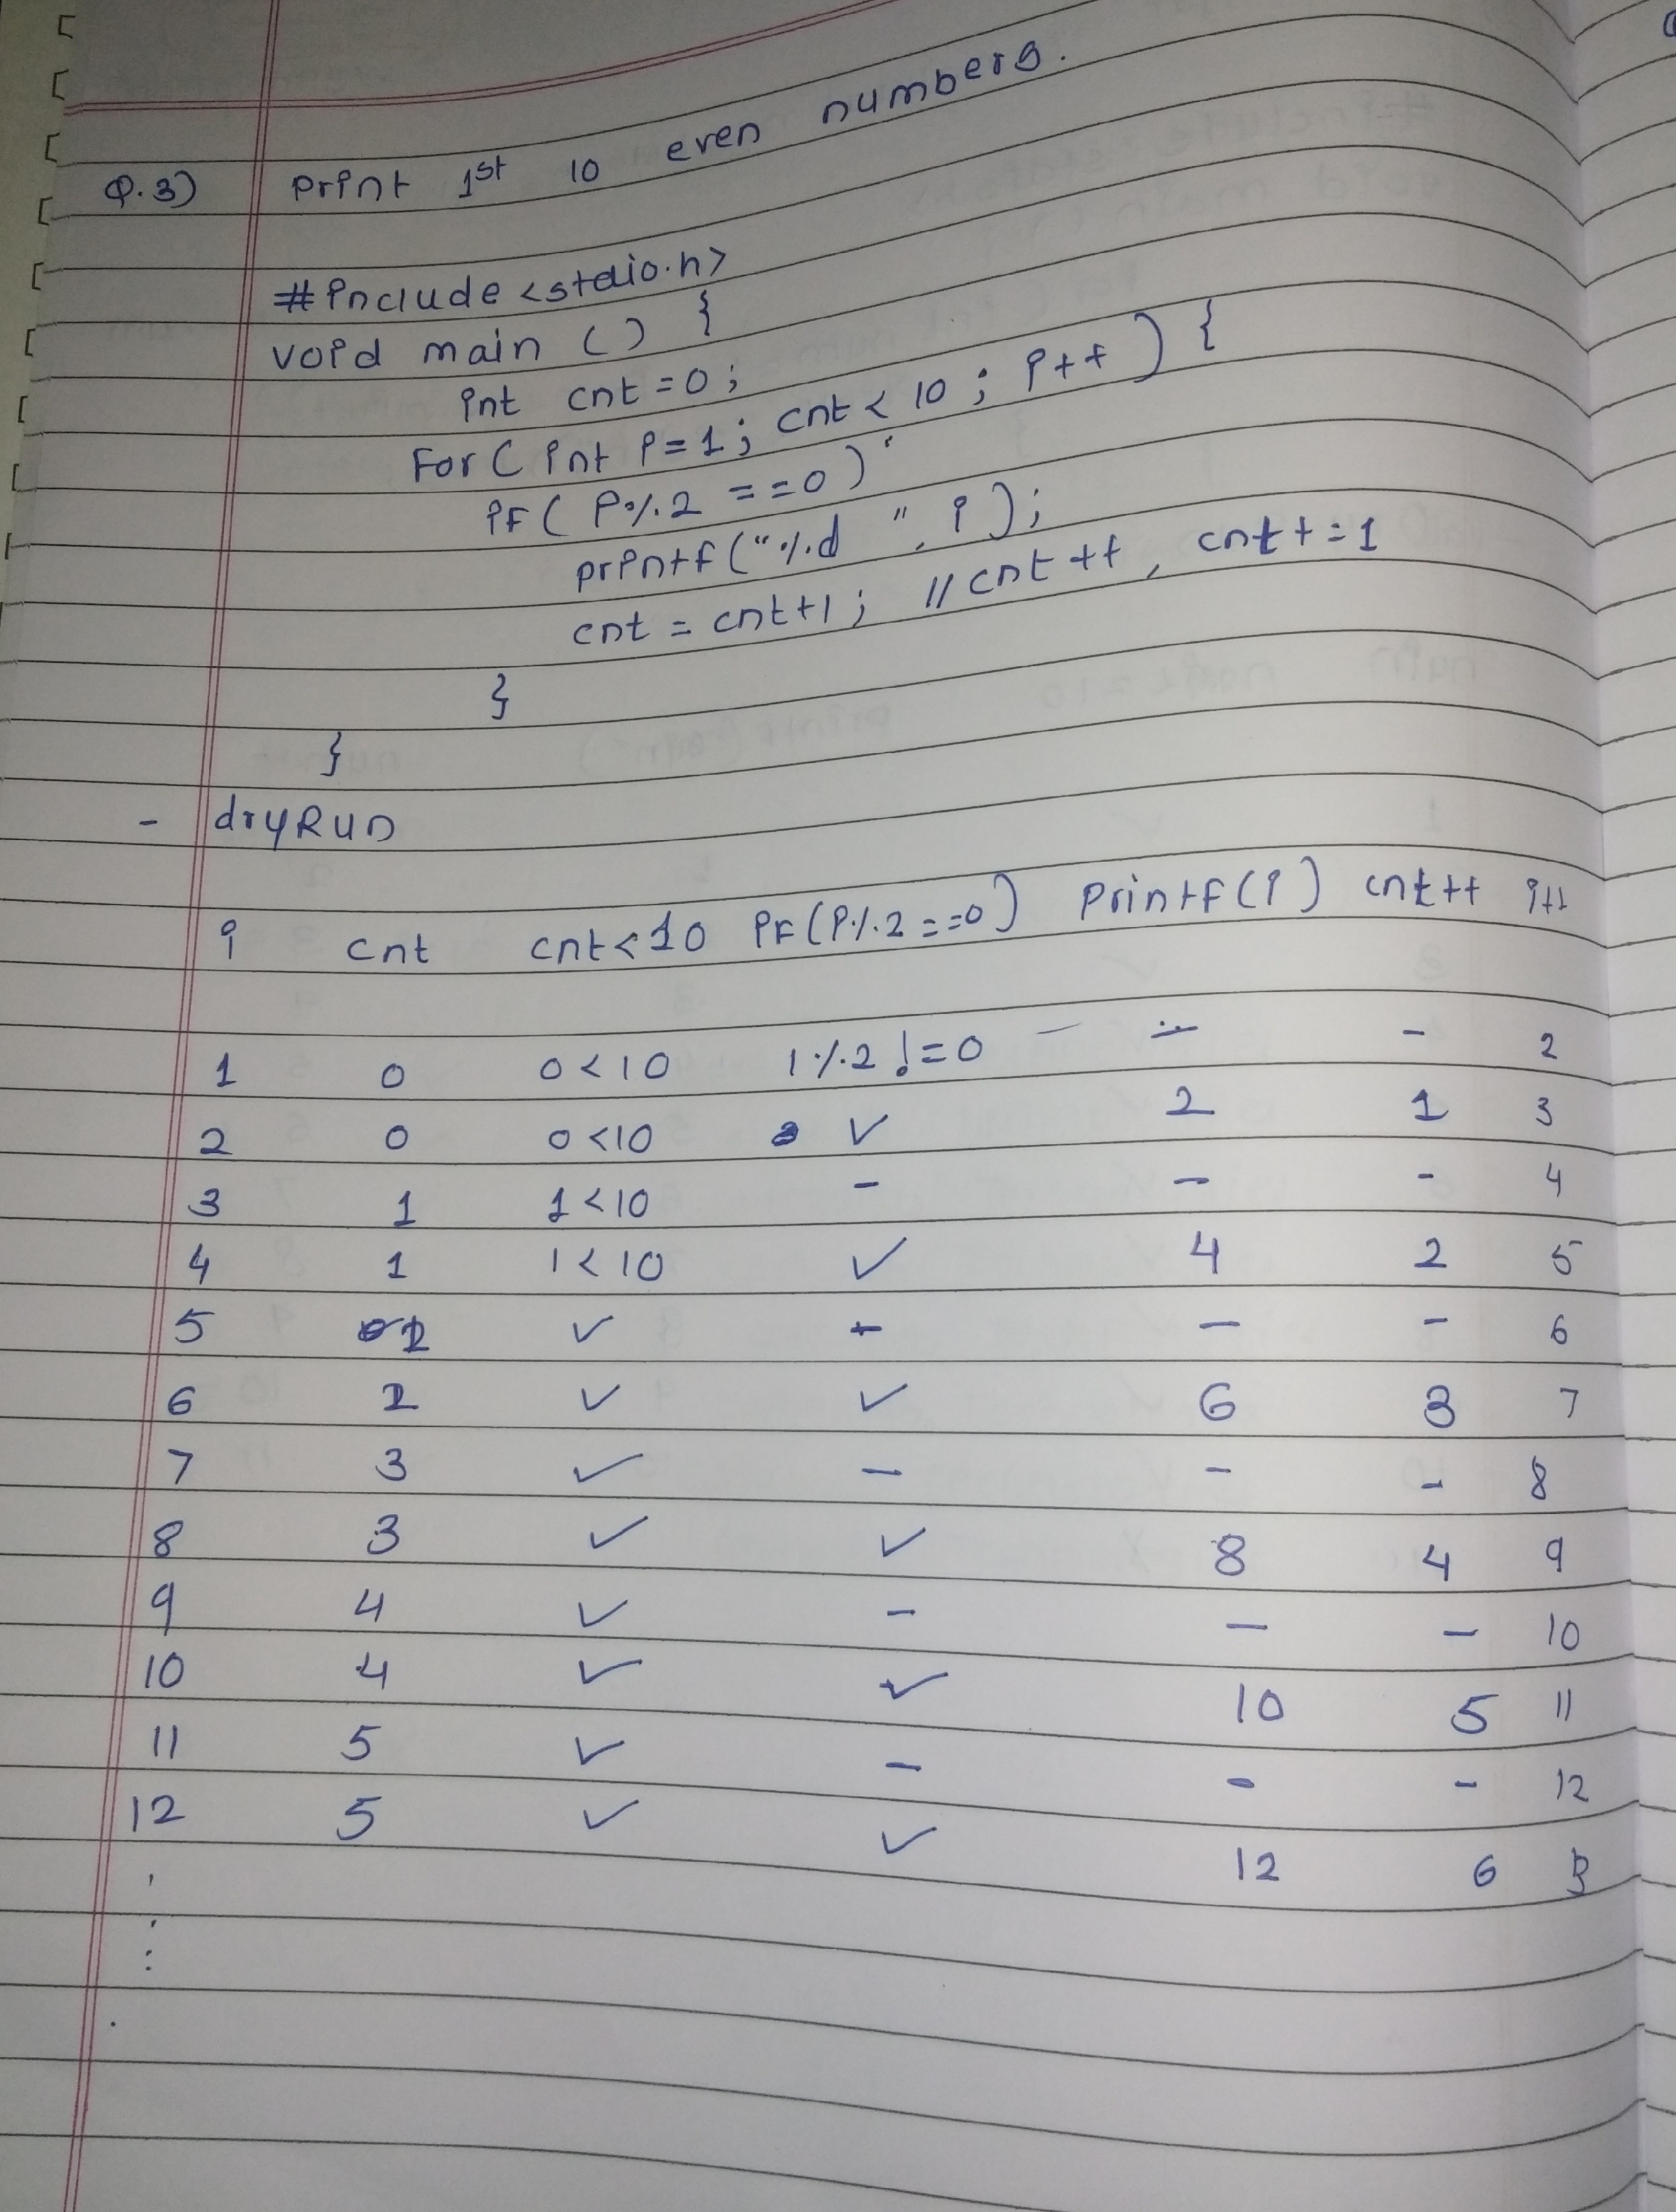 Q.3) Print 1st 10 even numbers.
#include <stdio.h>
void main () {
int cnt = 0;
For ( int i = 1; cnt < 10 ; i++ ) {
if ( i % 2 == 0 )
printf ("%d ", i );
cnt = cnt+1 ; // cnt ++, cnt += 1
}
}
- dryRun
i cnt cnt<10 if (i%2==0) Printf (i) cnt++ i++
1 0 0<10 1%2!=0 - - 2
2 0 0<10 ✓ 2 1 3
3 1 1<10 - - - 4
4 1 1<10 ✓ 4 2 5
5 2 ✓ - - - 6
6 2 ✓ ✓ 6 3 7
7 3 ✓ - - - 8
8 3 ✓ ✓ 8 4 9
9 4 ✓ - - - 10
10 4 ✓ ✓ 10 5 11
11 5 ✓ - - - 12
12 5 ✓ ✓ 12 6